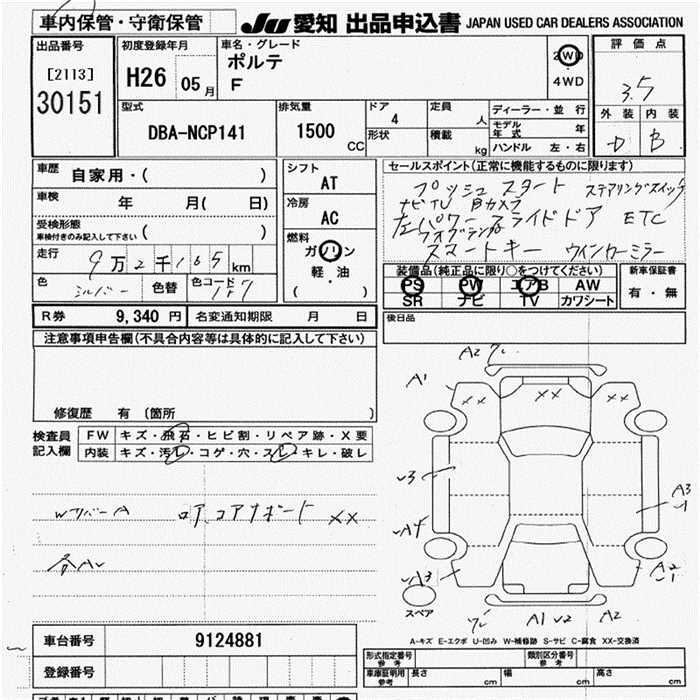 車内保管・守衛保管
JU 愛知 出品申込書 JAPAN USED CAR DEALERS ASSOCIATION
出品番号
[2113]
30151
初度登録年月
H26 05 月
車名・グレード
ポルテ
F
2WD
4WD
評価点
3.5
外装 内装
D B
型式
DBA-NCP141
排気量
1500 CC
ドア
4
形状
定員
人
積載
kg
ディーラー・並行
モデル年式 年
ハンドル 左・右
車歴
自家用・( )
車検
年 月( 日)
受検形態
車検付きのみ記入して下さい ( )
走行
9万2千165 km
色
シルバー
色替
色コード
シフト
AT
冷房
AC
燃料
ガソリン
軽・油
( )
セールスポイント(正常に機能するものに限ります)
プッシュスタート ステアリングスイッチ
ナビTV Bカメラ
左パワースライドドア ETC
フォグランプ
スマートキー ウインカーミラー
装備品(純正品に限り○をつけてください)
PS PW エアB AW
SR ナビ TV カワシート
新車保証書
有・無
R券 9,340 円 名変通知期限 月 日
後日品
注意事項申告欄(不具合内容等は具体的に記入して下さい)
修復歴 有 (箇所 )
検査員
記入欄
FW キズ・飛石・ヒビ割・リペア跡・X要
内装 キズ・汚レ・コゲ・穴・スレ・キレ・破レ
XX
各AU
A2
A1
XX
XX
XX
U3
A3
A3
A2
A1 U2 A2
スペア
A-キズ E-エクボ U-凹み W-補修跡 S-サビ C-腐食 XX-交換済
車台番号 9124881
登録番号
形式指定番号
参考
類別区分番号
参考
車庫証明用
参考
長さ cm 幅 cm 高さ cm